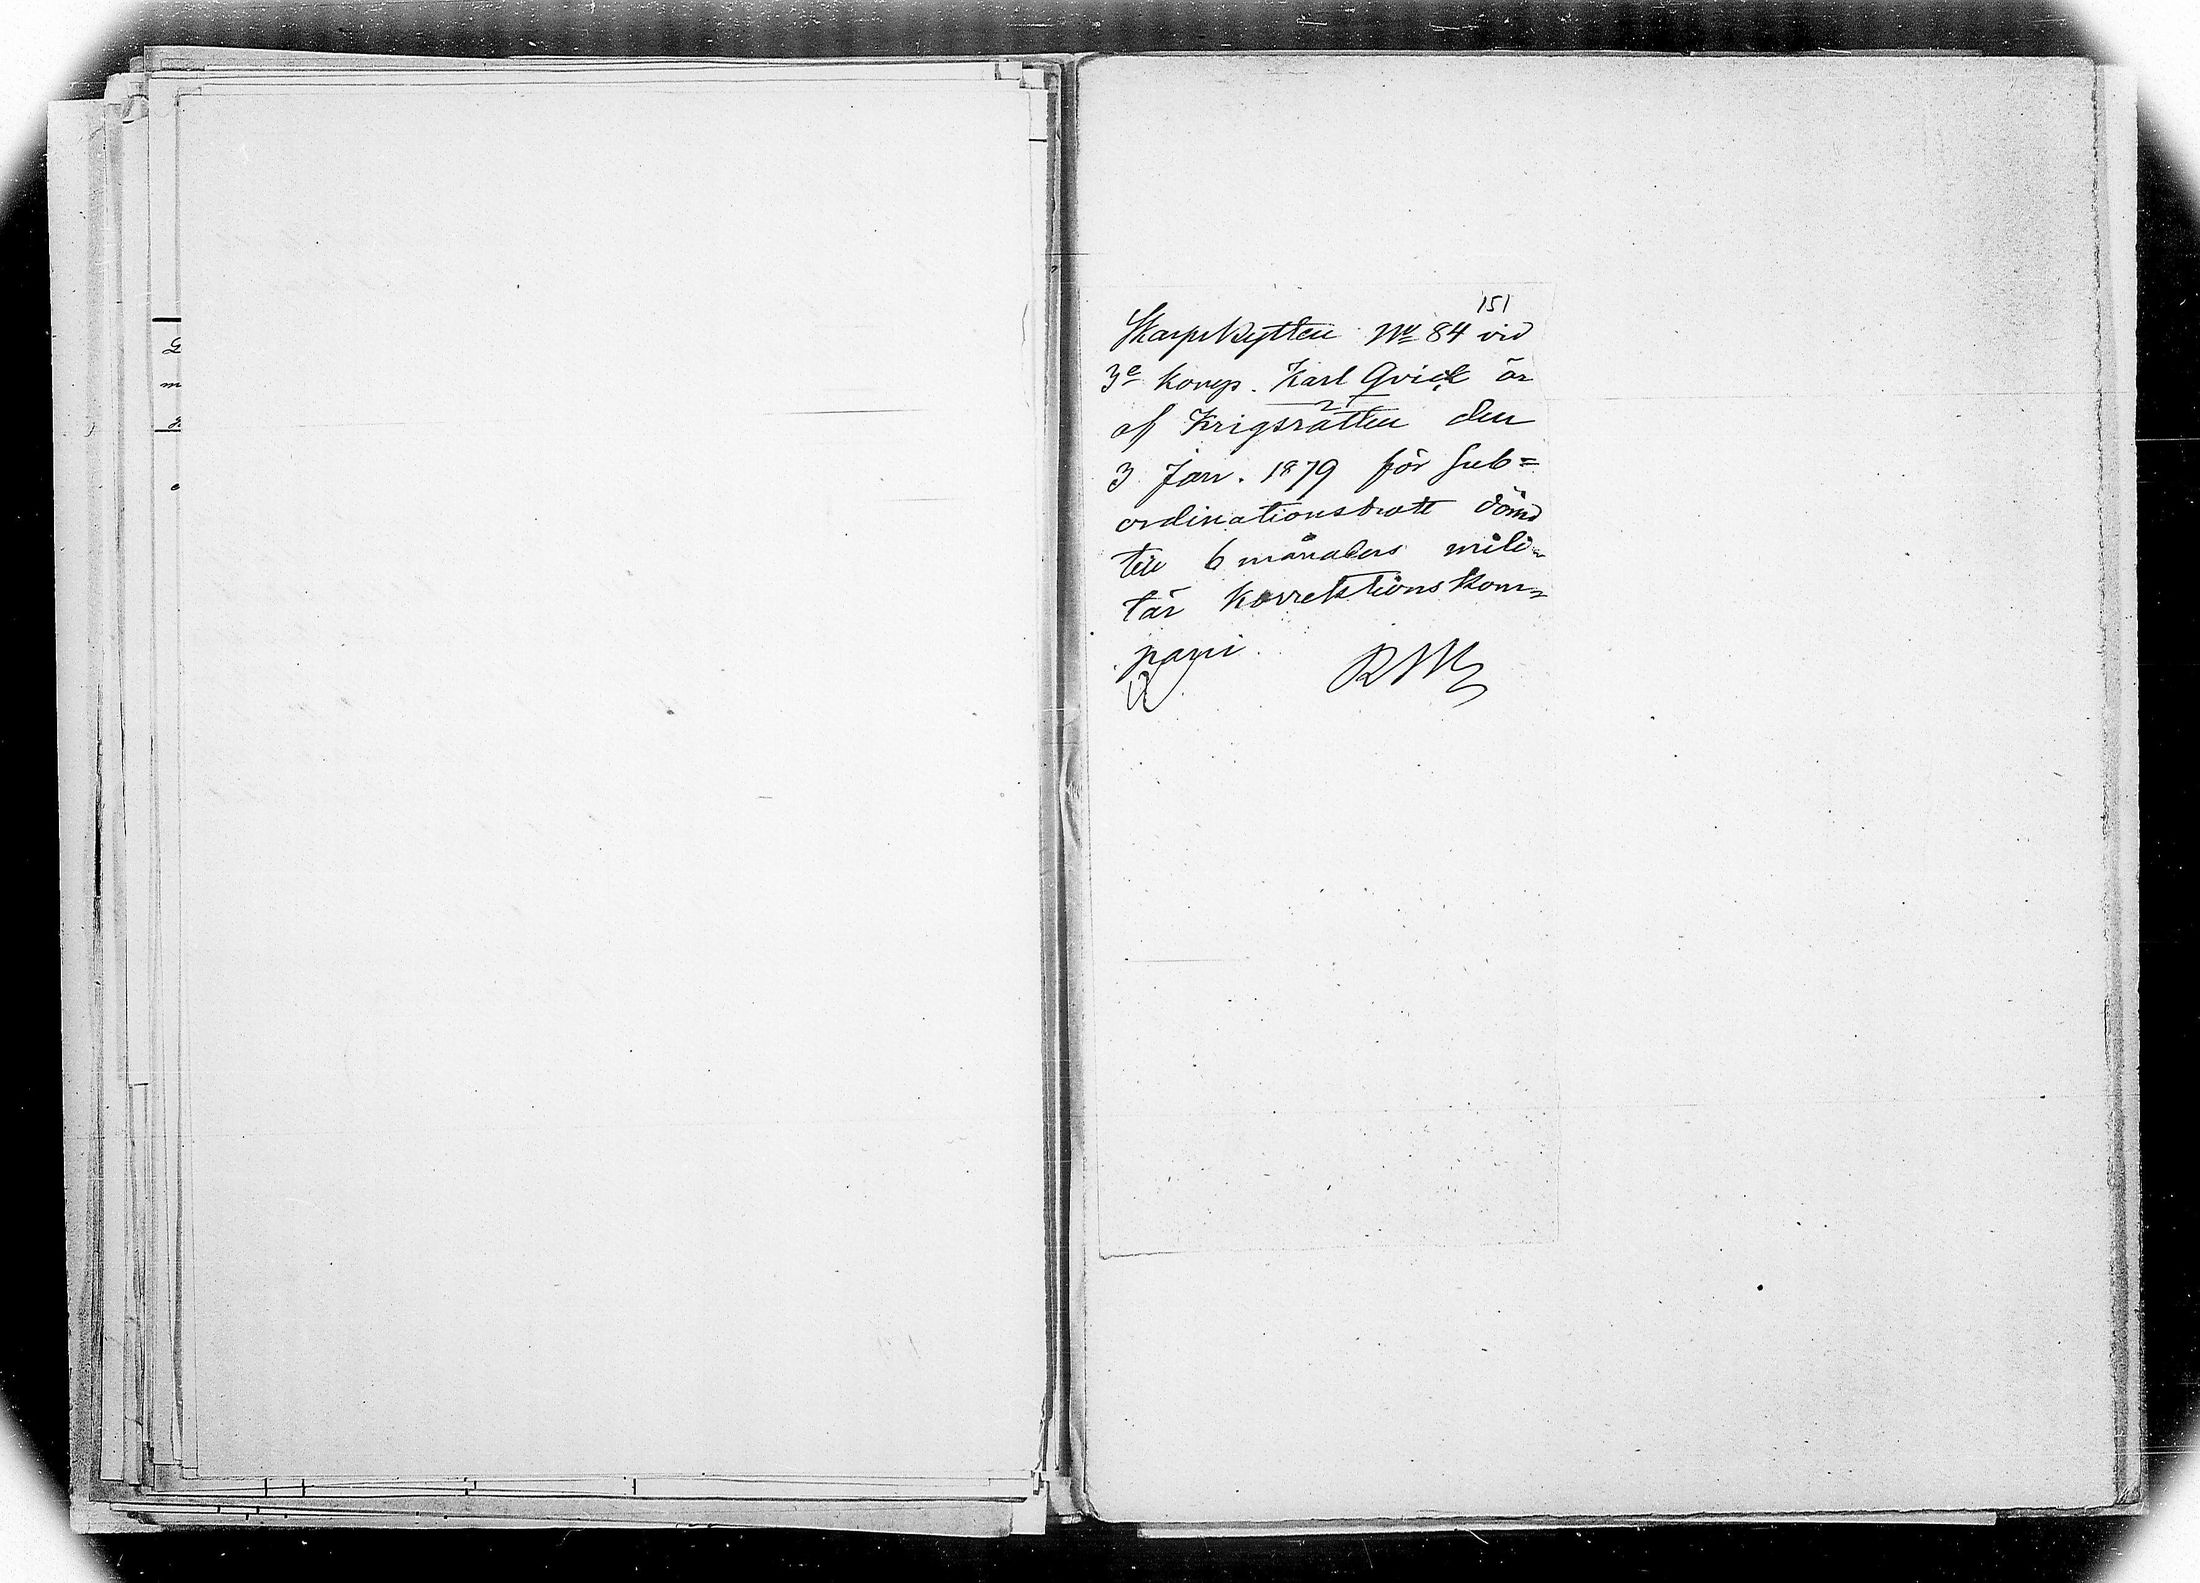 151
Skarpskytten No 84 vid
3e komp. Karl Qvick är
af Krigsrätten den
3 Jan. 1879 för sub=
ordinationsbrott dömd
till 6 månaders mili=
tär korrektionskom=
pani.